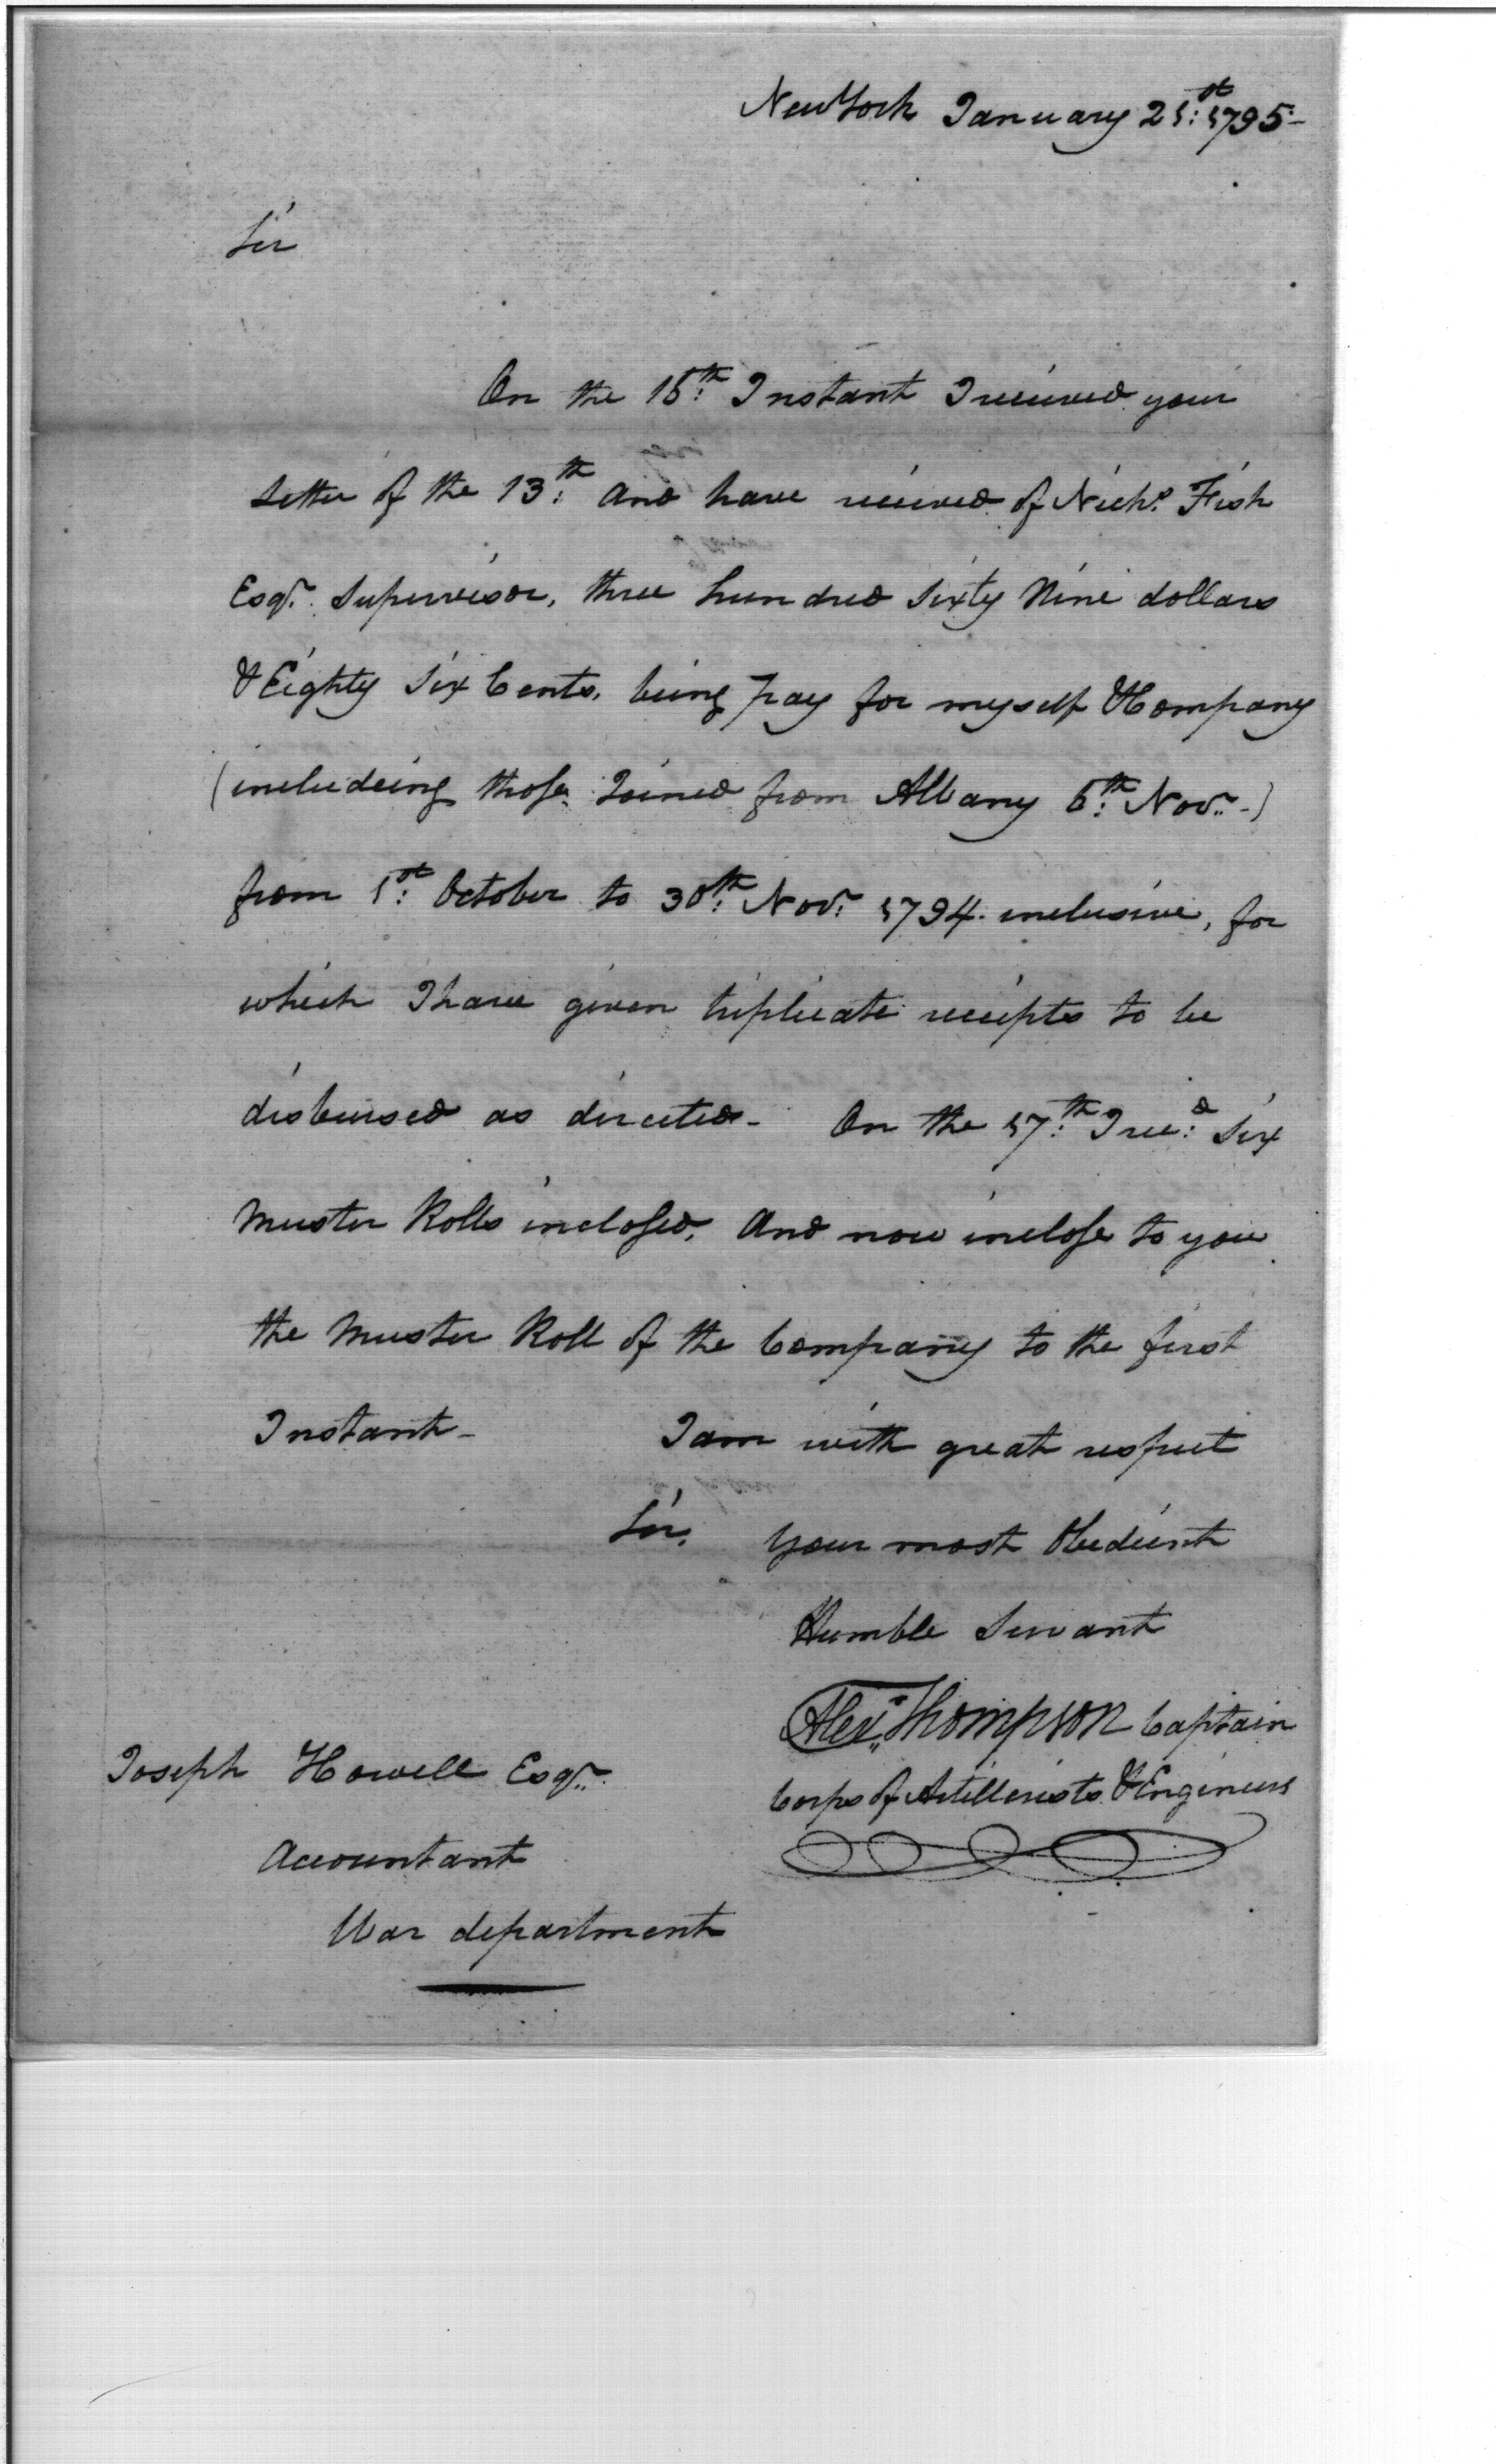 New York January 21:st 1795.-
Sir
On the 16:th Instant I received your
Letter of the 13:th and have received of Nichs. Fish
Esqr. Supervisor, three hundred Sixty Nine dollars
& Eighty Six Cents, being pay for myself & Company
(includeing those Joined from Albany 6:th Novr.-)
from 1:st October to 30th: Novr: 1794. inclusive, for
which I have given triplicate receipts to be
disbursed as directed- On the 17:th I rec:d Six
Muster Rolls inclosed, And now inclose to you
the Muster Roll of the Company to the first
Instant- I am with great respect
Sir, Your most Obedient
Humble Servant
Alexr. Thompson Captain
Corps of Artillerists & Engineers
Joseph Howell Esqr.
Accountant
War department